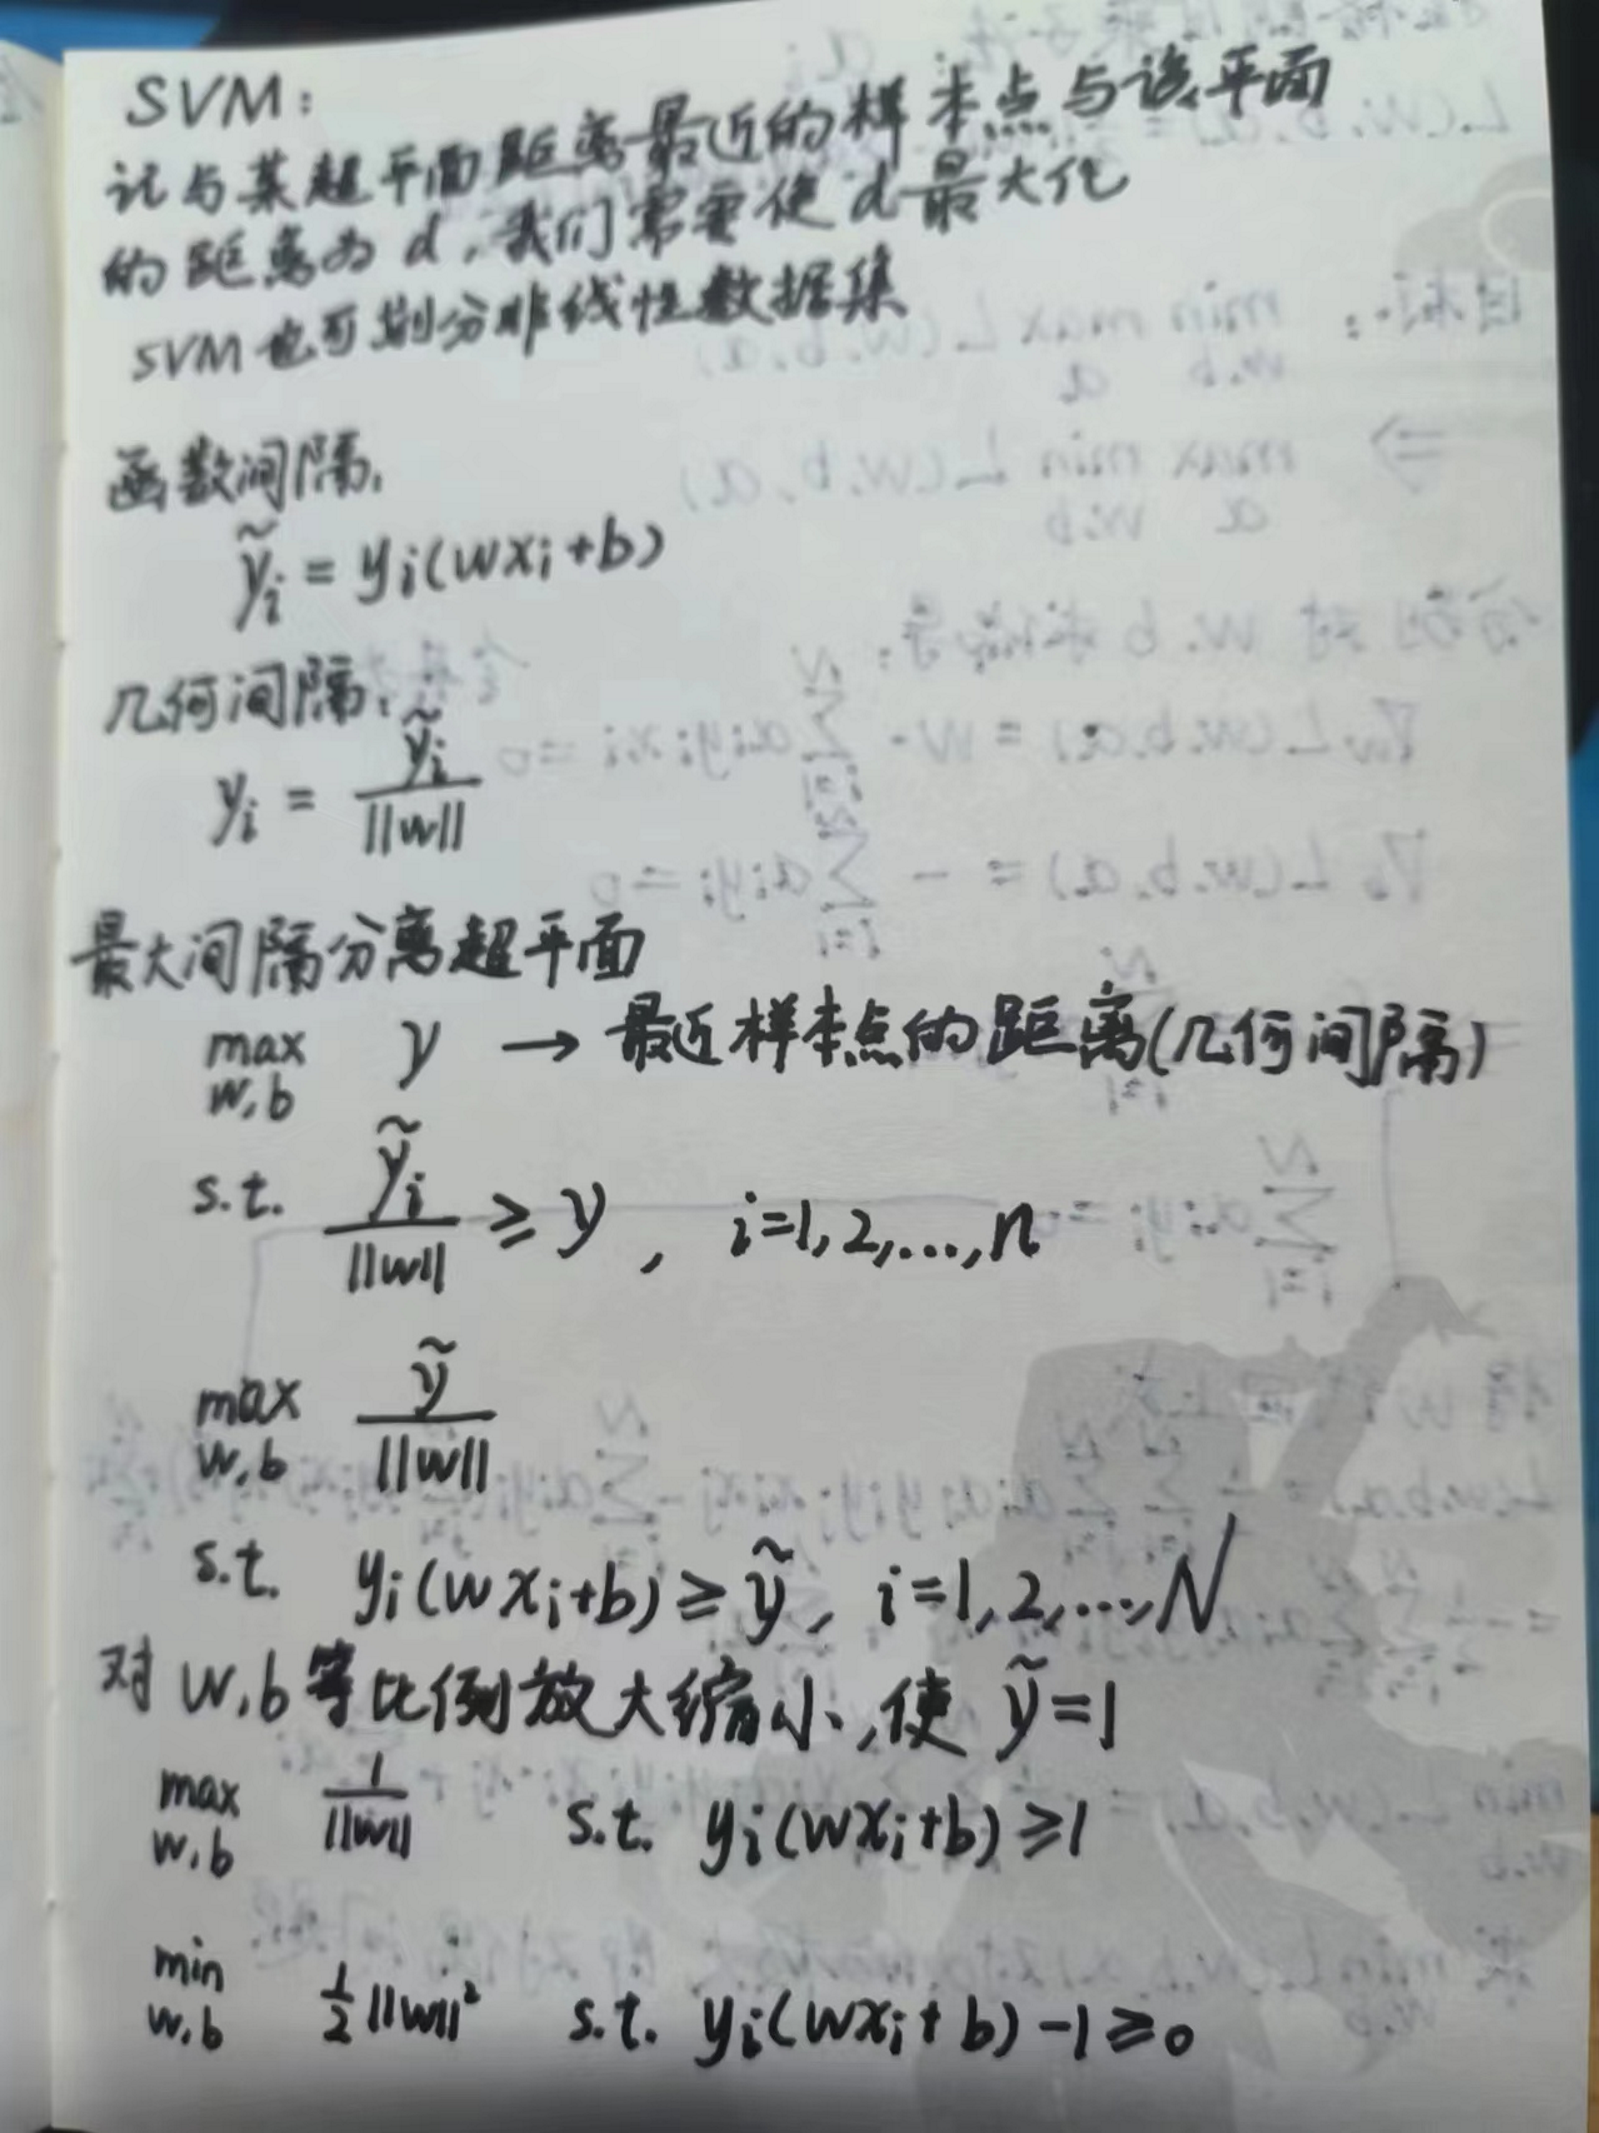 SVM:
记与某超平面距离最近的样本点与该平面
的距离为 d,我们需要使 d 最大化
SVM 也可划分非线性数据集
函数间隔:
ỹi = yi(wxi+b)
几何间隔:
yi = ỹi / ||w||
最大间隔分离超平面
max w,b y → 最近样本点的距离(几何间隔)
s.t. ỹi / ||w|| ≥ y , i=1,2,...,n
max w,b ỹ / ||w||
s.t. yi(wxi+b) ≥ ỹ, i=1,2,...,N
对 w,b 等比例放大缩小,使 ỹ=1
max w,b 1 / ||w|| s.t. yi(wxi+b) ≥1
min w,b 1/2 ||w||² s.t. yi(wxi+b) -1 ≥0